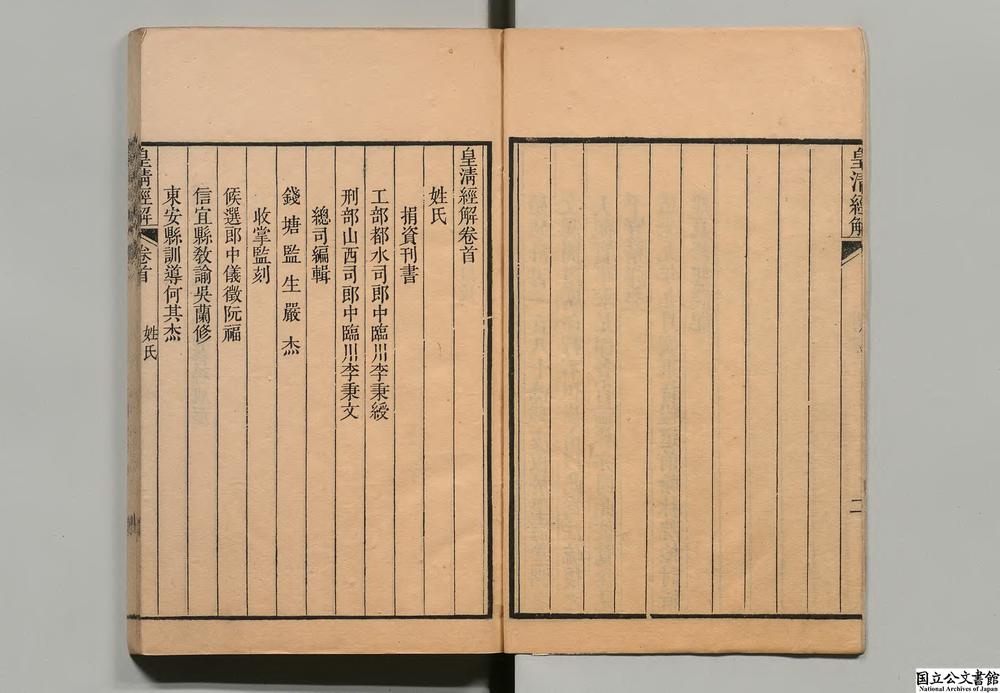 皇清經解
二
皇清經解卷首
姓氏
捐資刊書
工部都水司郎中臨川李秉綬
刑部山西司郎中臨川李秉文
總司編輯
錢塘監生嚴杰
收掌監刻
候選郎中儀徵阮福
信宜縣敎諭吳蘭修
東安縣訓導何其杰
皇清經解
卷首
姓氏
国立公文書館
National Archives of Japan